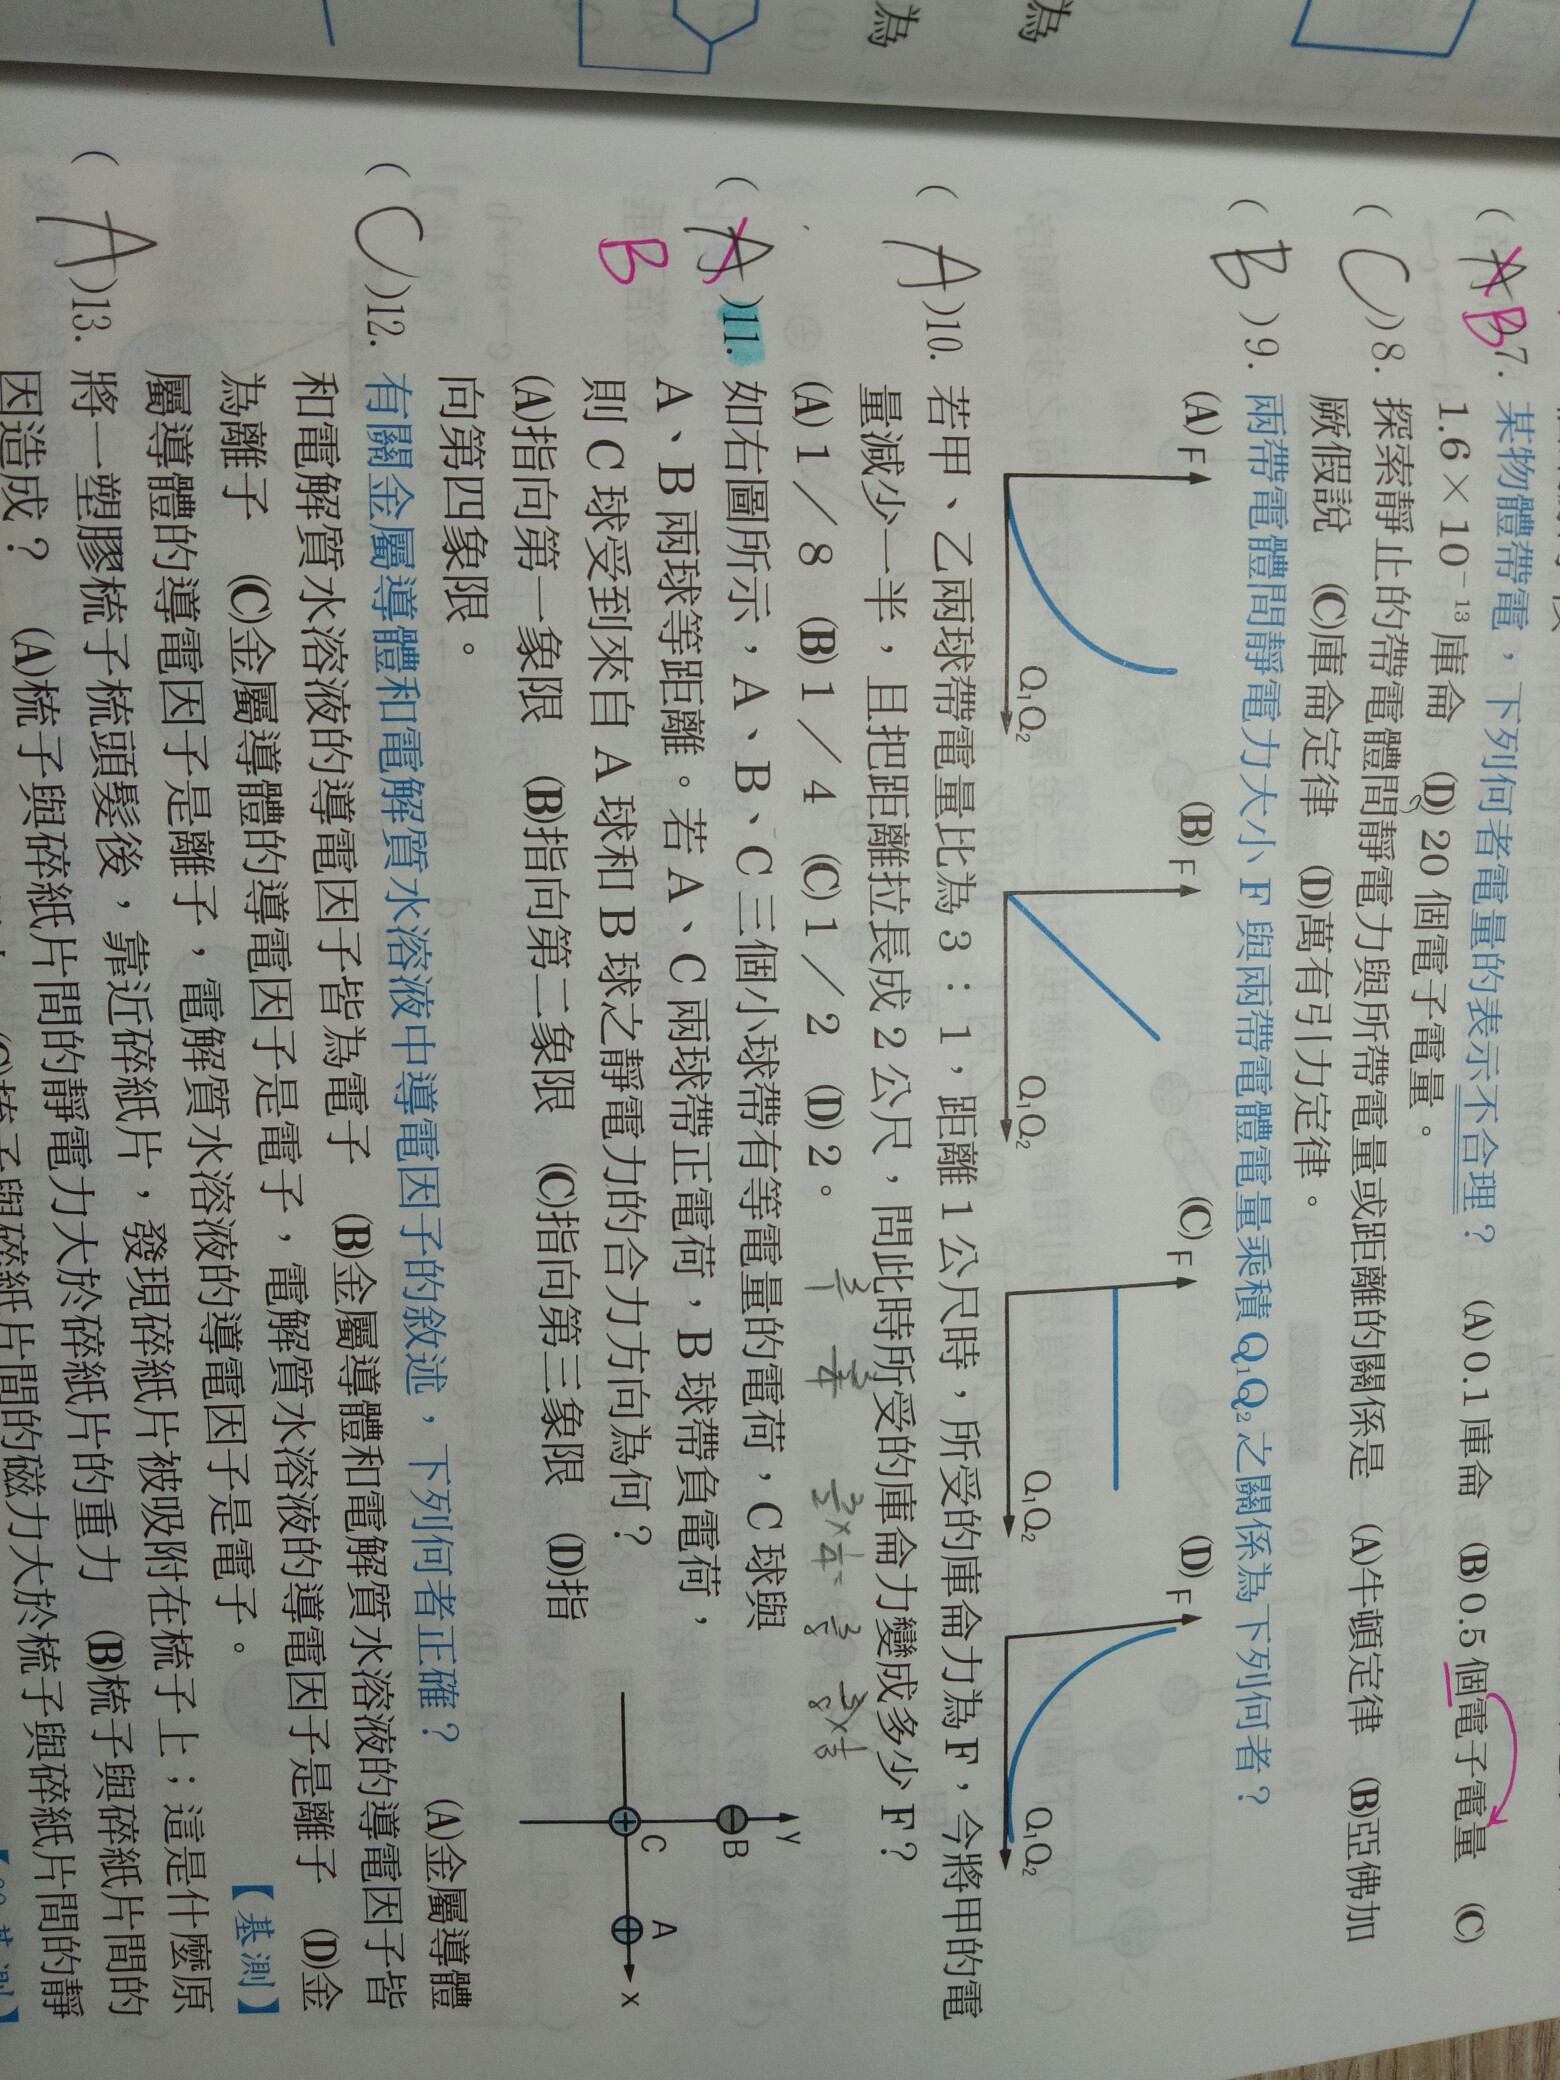 為
為
(A B)7. 某物體帶電，下列何者電量的表示不合理？ (A)0.1庫侖 (B)0.5個電子電量 (C)
1.6×10⁻¹³庫侖 (D)20個電子電量。
(C)8. 探索靜止的帶電體間靜電力與所帶電量或距離的關係是 (A)牛頓定律 (B)亞佛加
厥假說 (C)庫侖定律 (D)萬有引力定律。
(B)9. 兩帶電體間靜電力大小F與兩帶電體電量乘積Q₁Q₂之關係為下列何者？
(A) F Q₁Q₂ (B) F Q₁Q₂ (C) F Q₁Q₂ (D) F Q₁Q₂
(A)10. 若甲、乙兩球帶電量比為3：1，距離1公尺時，所受的庫侖力為F，今將甲的電
量減少一半，且把距離拉長成2公尺，問此時所受的庫侖力變成多少F？
(A)1／8 (B)1／4 (C)1／2 (D)2。
(A)11. 如右圖所示，A、B、C三個小球帶有等電量的電荷，C球與
B
A、B兩球等距離。若A、C兩球帶正電荷，B球帶負電荷，
則C球受到來自A球和B球之靜電力的合力方向為何？
(A)指向第一象限 (B)指向第二象限 (C)指向第三象限 (D)指
向第四象限。
y
B
C
A
x
(C)12. 有關金屬導體和電解質水溶液中導電因子的敘述，下列何者正確？ (A)金屬導體
和電解質水溶液的導電因子皆為電子 (B)金屬導體和電解質水溶液的導電因子皆
為離子 (C)金屬導體的導電因子是電子，電解質水溶液的導電因子是離子 (D)金
屬導體的導電因子是離子，電解質水溶液的導電因子是電子。 【基測】
(A)13. 將一塑膠梳子梳頭髮後，靠近碎紙片，發現碎紙片被吸附在梳子上；這是什麼原
因造成？ (A)梳子與碎紙片間的靜電力大於碎紙片的重力 (B)梳子與碎紙片間的靜